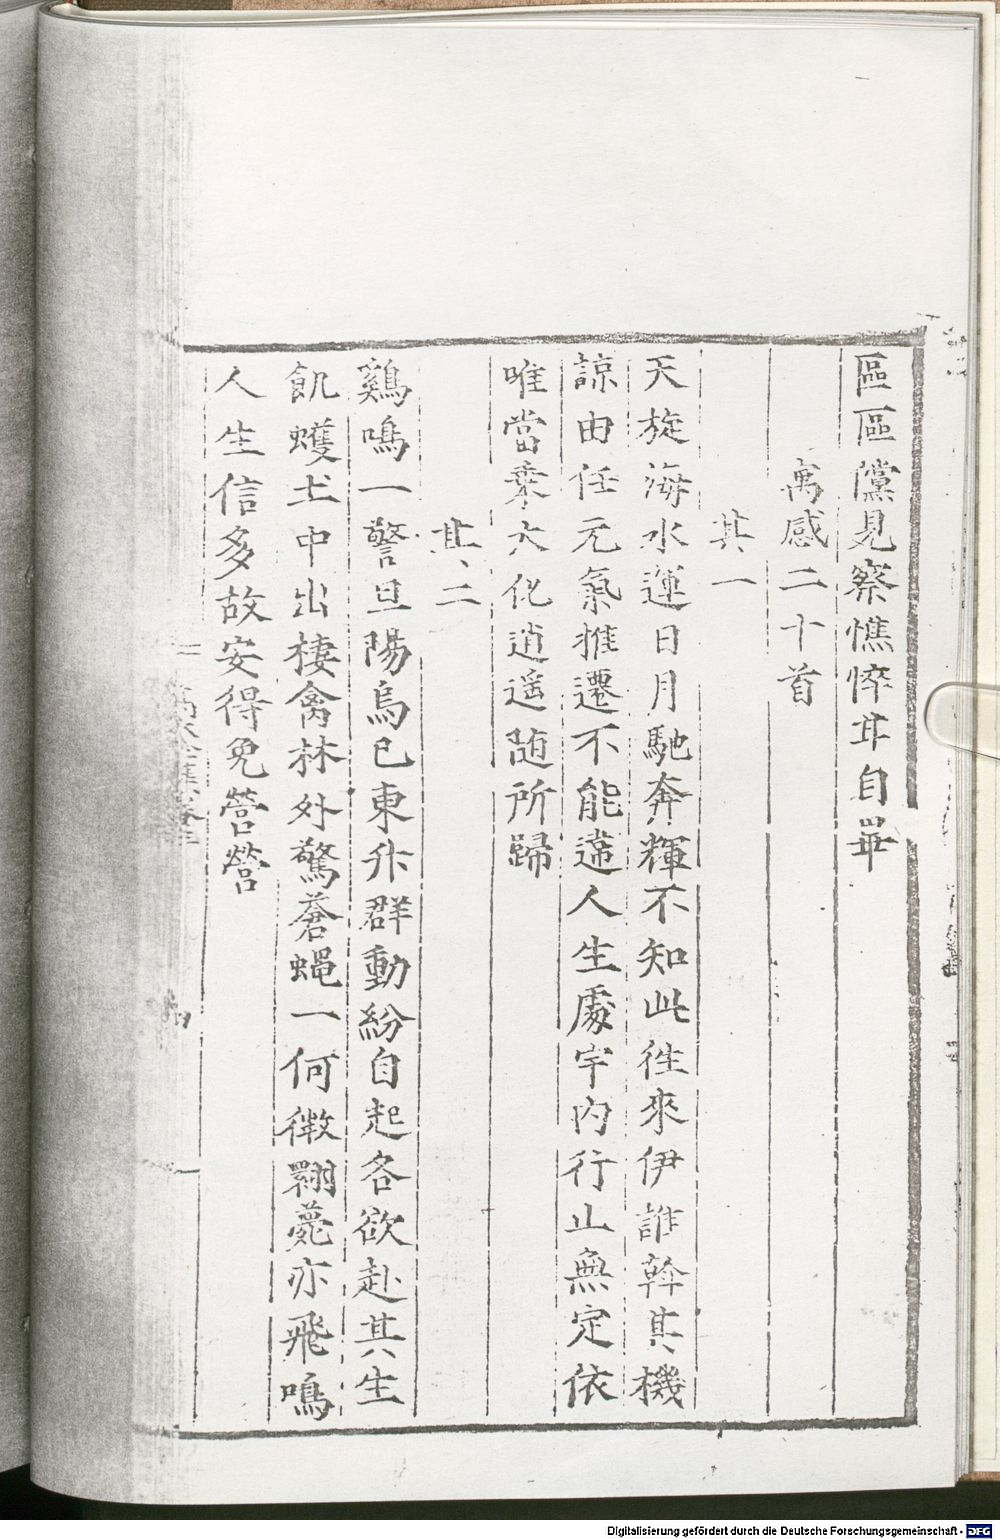 區區儻見察憔悴甘自畢
寓感二十首
其一
天旋海水運日月馳奔輝不知此徃來伊誰幹其機
諒由任元氣推遷不能違人生處宇内行止無定依
唯當乗大化逍遥随所歸
其二
鷄鳴一警旦陽烏已東升群動紛自起各欲赴其生
飢蠖土中出棲禽林外驚蒼蝇一何微翾薨亦飛鳴
人生信多故安得免營營
Digitalisierung gefördert durch die Deutsche Forschungsgemeinschaft - DFG